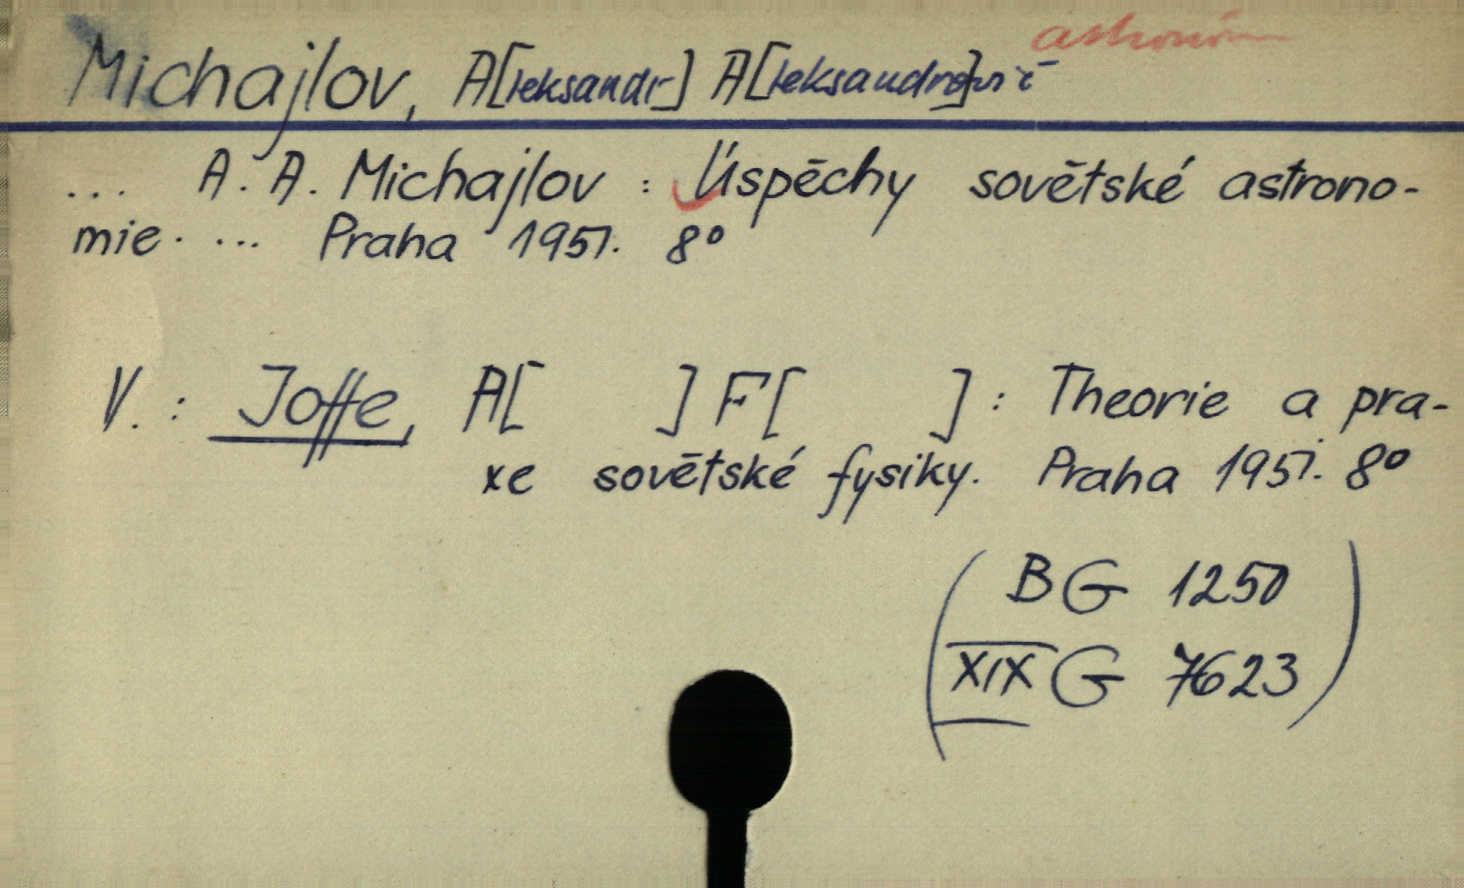 astronóm
Michajlov, A[leksandr] A[leksandro]vič
... A. A. Michajlov : Úspěchy sovětské astrono-
mie. ... Praha 1951. 8°
V. : Joffe, A[ ] F[ ] : Theorie a pra-
xe sovětské fysiky. Praha 1951. 8°
(BG 1250
XIX G 7623)